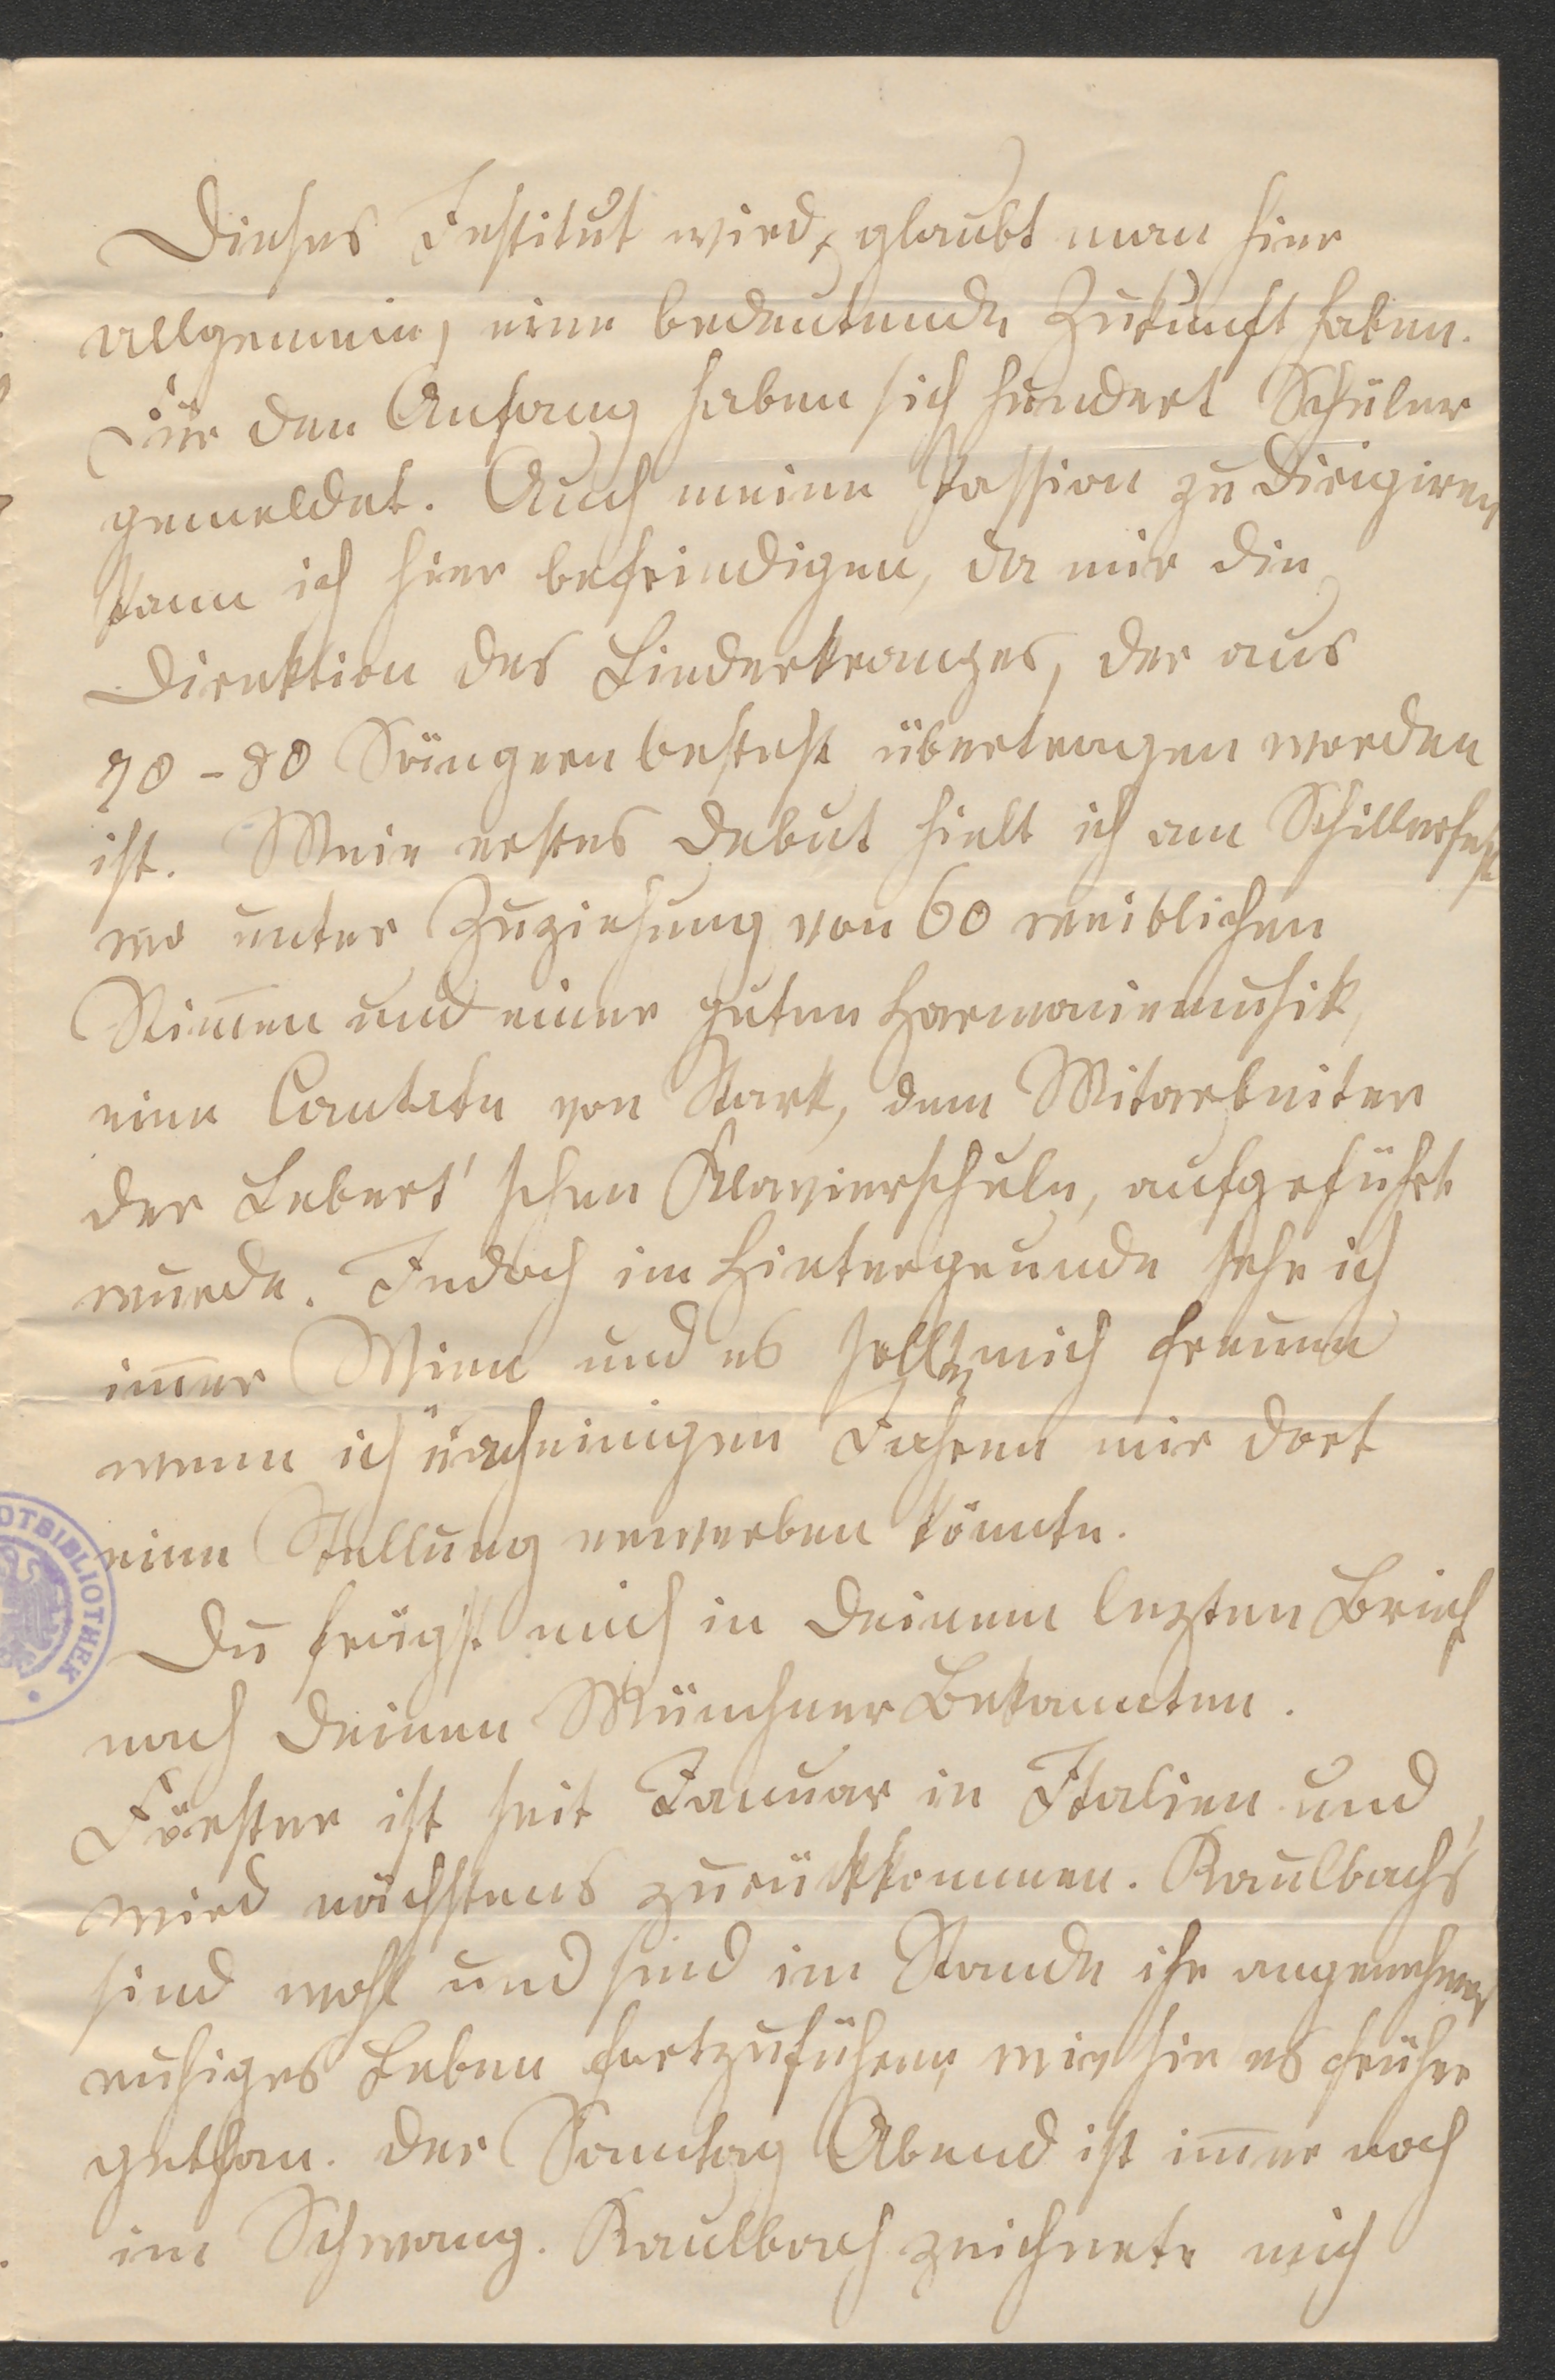 Dieses Institut wird, glaubt man hier
allgemein, eine bedeutende Zukunft haben.
Für den Anfang haben sich hundert Schüler
gemeldet. Auch meine Passion zu dirigiren
kann ich hier befriedigen, da mir die
Direktion des Liederkranzes, der aus
70-80 Sängern besteht übertragen worden
ist. Mein erstes Debut hielt ich am Schillerfest
wo unter Zuziehung von 60 weiblichen
Stim̅en und einer guten Harmoniemusik,
eine Cantate von Stark, dem Mitarbeiter
der Lebert'schen Klavierschule, aufgeführt
wurde. Jedoch im Hintergrunde sehe ich
im̅er Wien und es sollte mich freuen
wenn ich nach einigen Jahren mir dort
eine Stellung erwerben könnte.
Du frägst mich in Deinem lezten Brief
nach Deinen Münchner Bekannten.
Förster ist seit Januar in Italien und
wird nächstens zurückkommen. Kaulbach's
sind wohl und sind im Stande ihr angenehmes
ruhiges Leben fortzuführen, wie sie es früher
gethan. Der Sonntag Abend ist im̅er noch
im Schwang. Kaulbach zeichnete mich
OTBIBLIOTHEK